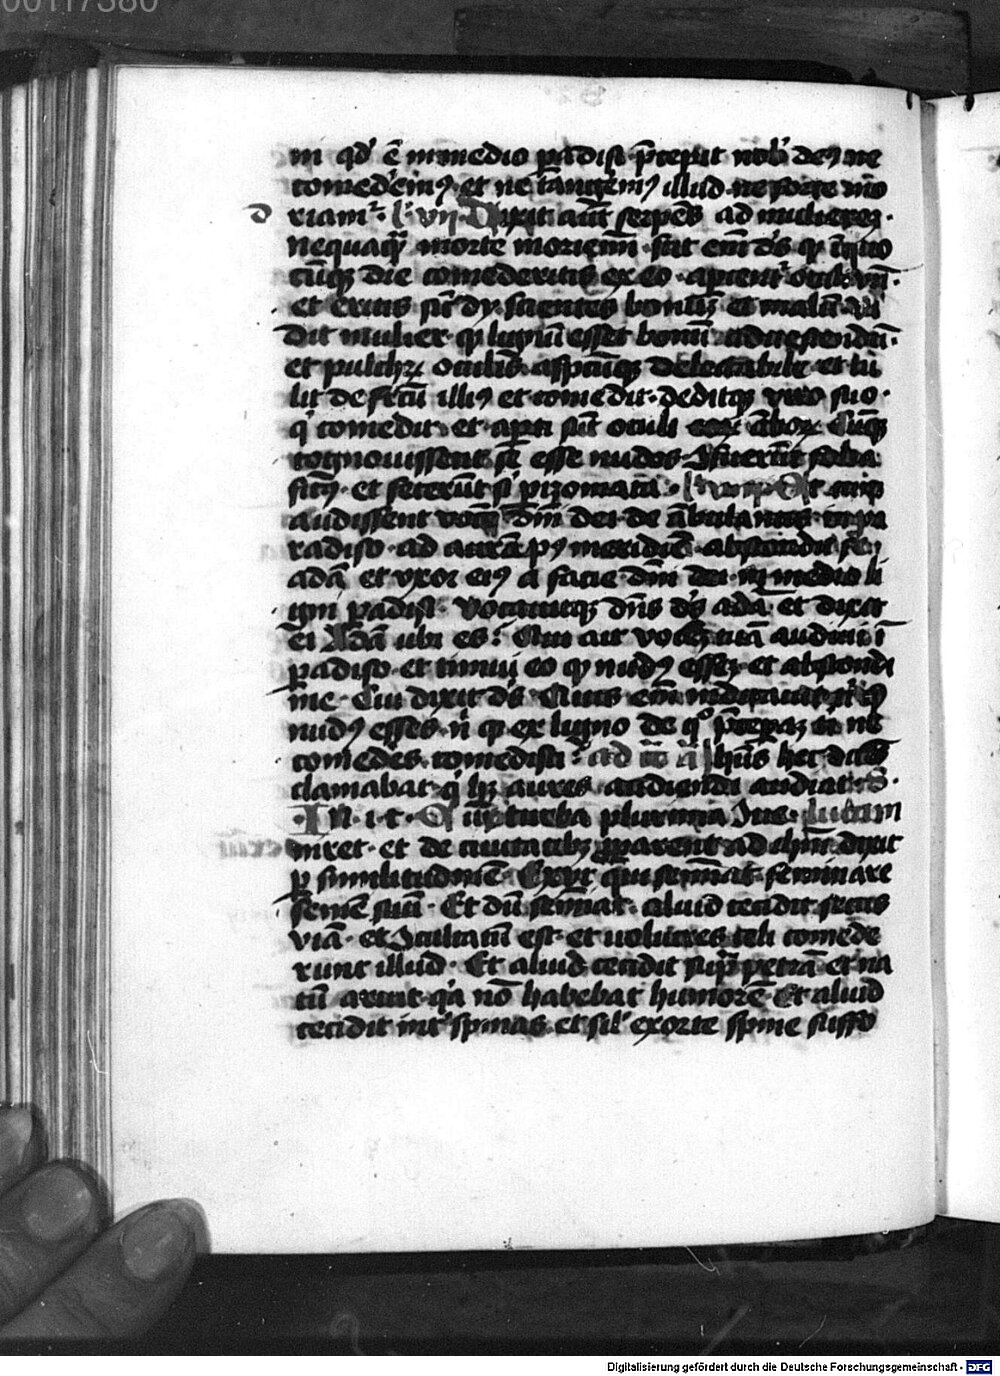 00117380
ni qd' ē in medio padisi p̄cepit nob' deꝰ ne
comed'emꝰ et ne tangem̄ꝰ illud ne forte mo
d riamr̄ l' vij Dixit aūt serpēs ad mulierez
nequaq̄ morte moriem̄ scit em̄ ds̄ qꝫ ī quo
cūqꝫ die comederitis ex eo apient' oculi vr̄i
et eritis sic' dij scientes bonū et malū vi
dit mulier qꝫ lignū esset bonū ad vescendū
et pulchꝝ oculis aspcūqꝫ delectabile et tu
lit de frc̄tu illiꝰ et comedit deditqꝫ viro suo
q' comedit et apti sūt oculi amboꝝ Cūqꝫ
cognouissent se esse nudos ꝯsuerūt folia
ficꝰ et fecerūt s' pizomata l' viij Et cūqꝫ
audissent vocē dn̄i dei de ābulantis in pa
radiso ad aurā pꝰ meridiē abscondit se
adā et vxor eiꝰ a facie dn̄i dei in medio li
gni padisi Vocauitqꝫ dn̄s ds̄ adā et dixit
ei Adā ubi es Qui ait vocē tuā audiui ī
padiso et timui eo qꝫ nudꝰ essez et abscondi
me Cui dixit ds̄ Quis em̄ indicauit t' qꝫ
nudꝰ esses n' qꝫ ex ligno de qº p̄cepaz ti ne
comedes comedisti ad hūs hec dicēs
clamabat q' hꝫ aures audiendi audiat S
In i t Cū turba plurima Ih̄c lucam
niret et de ciuitatibꝫ pparent ad ihm̄ dixit
p similitudinē Exijt qui seminat seminare
semē suū Et dū seminat aliud cecidit secus
viā et ꝯculcatū est et uolucres celi comede
runt illud Et aliud cecidit sup̄ petrā et na
tū aruit q'a nō habebat humorē Et aliud
cecidit int' spinas et sil' exorte spine suffo
Digitalisierung gefördert durch die Deutsche Forschungsgemeinschaft - DFG